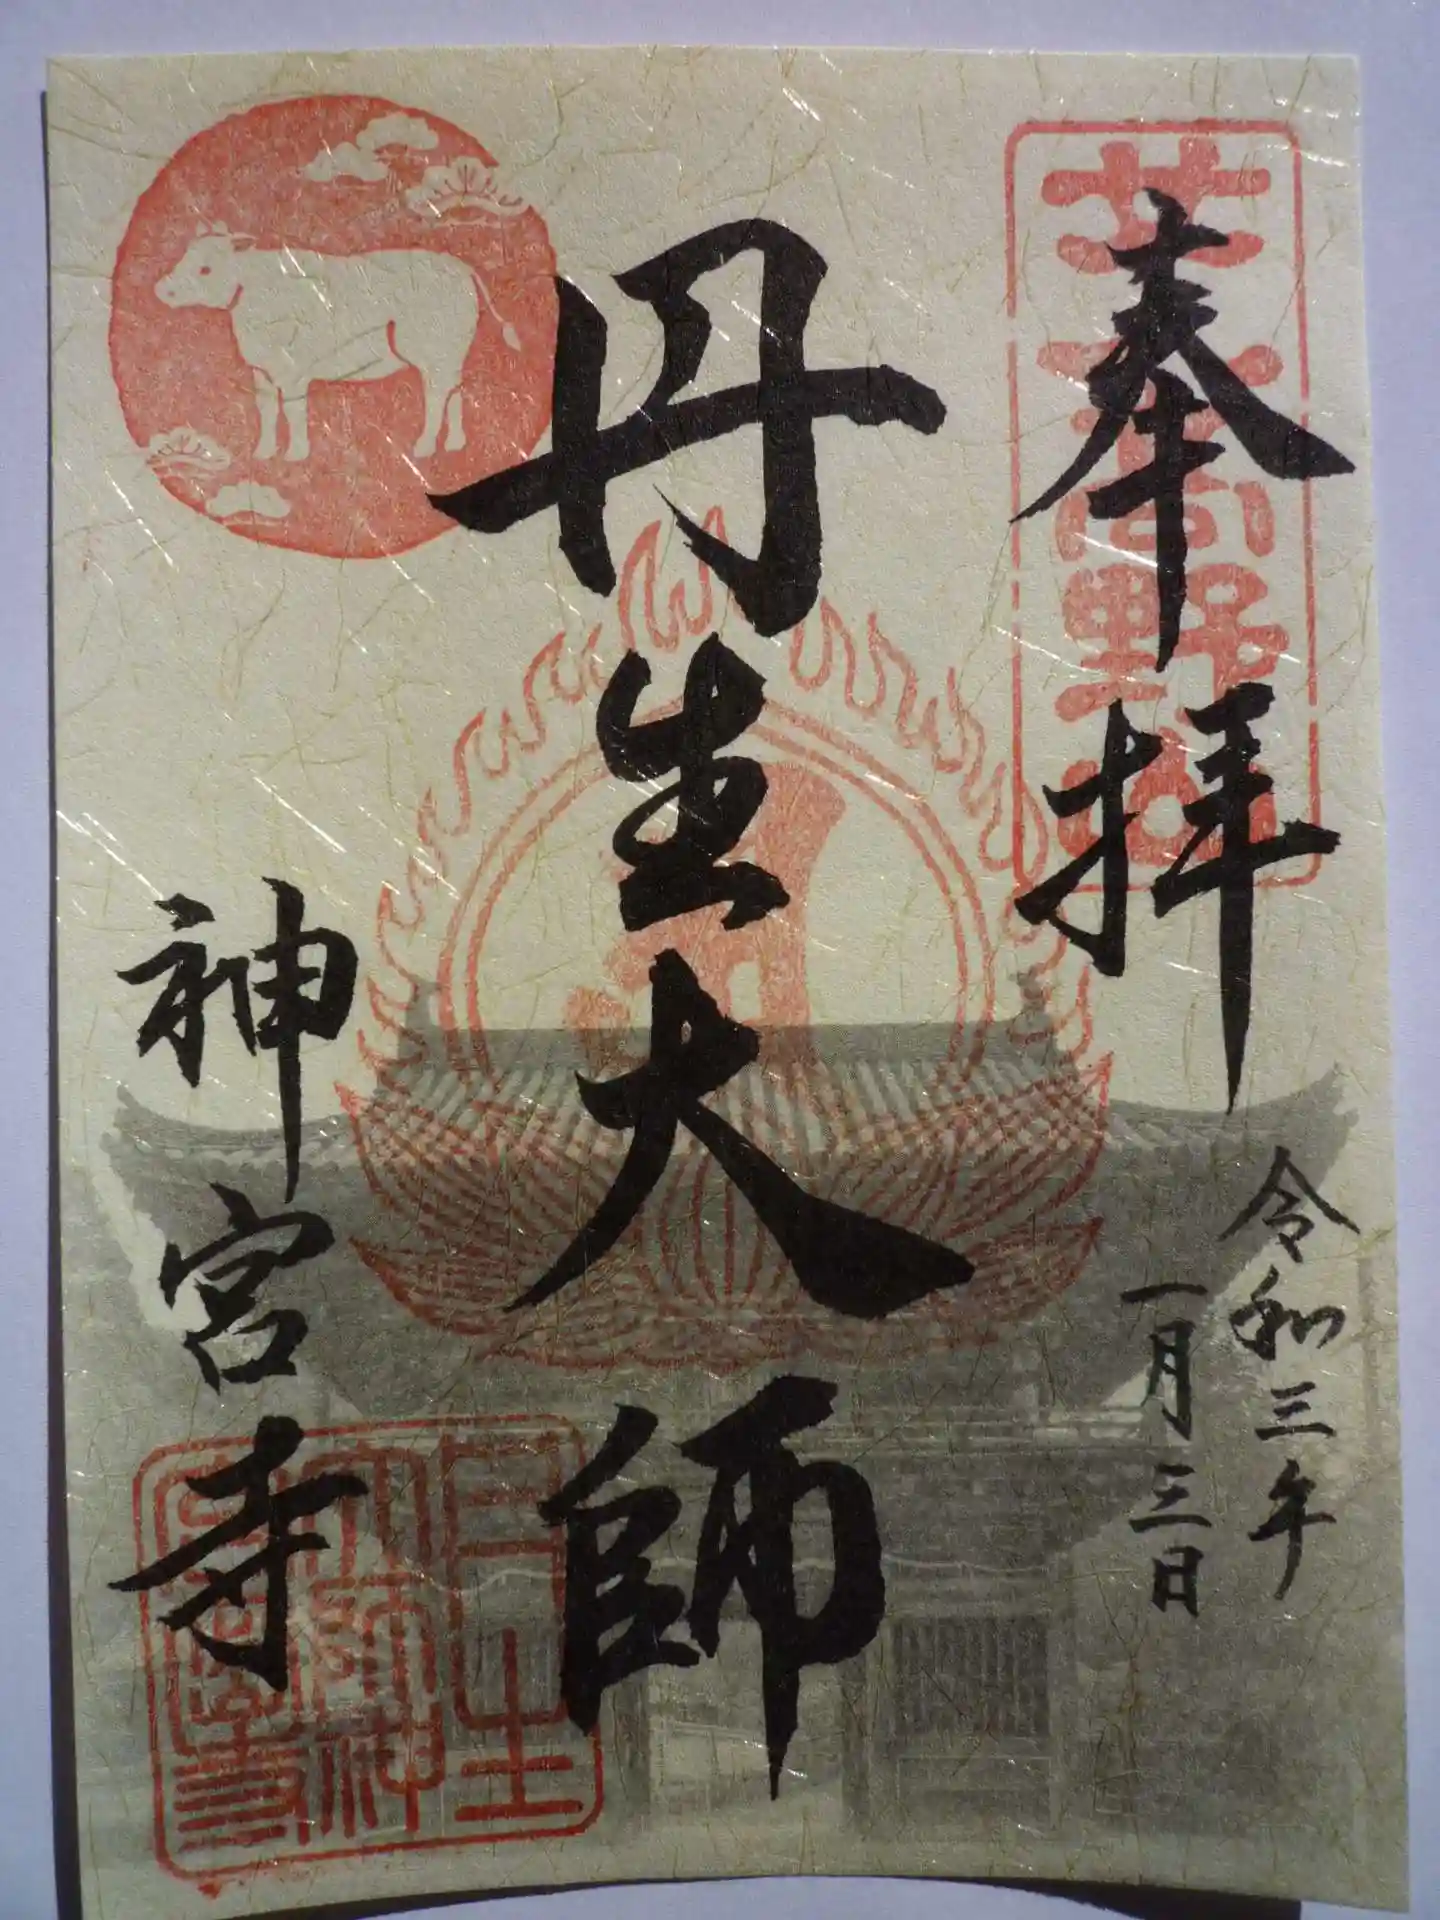 奉拝
令和三年
一月三日
丹生大師
神宮寺